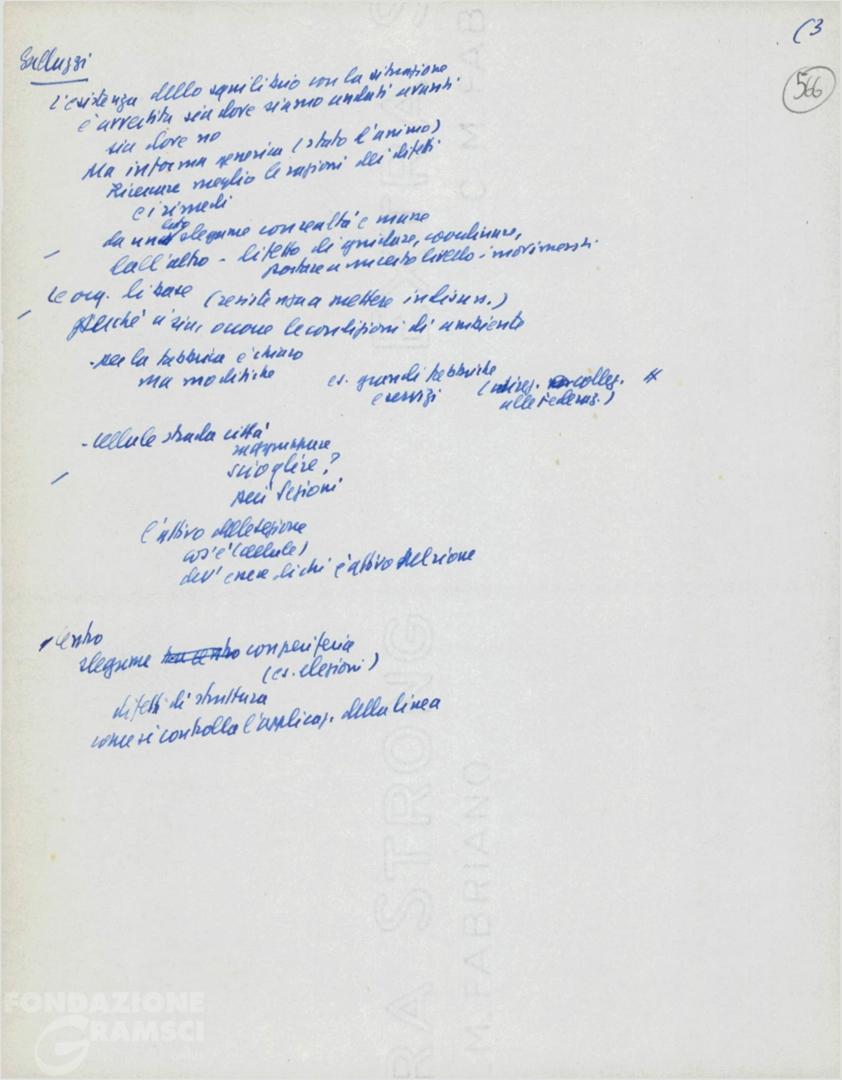 (3
566
Galluzzi
L'esistenza dello squilibrio con la situazione
è avvertita sia dove siamo andati avanti
sia dove no
Ma in forma generica (stato l'animo)
Ricercare meglio le ragioni dei difetti
e i rimedi
da un lato slegame con realtà e masse
dall'altro - difetto di guidare, coordinare,
portare a un certo livello i movimenti
Le org. di base (resistenza a mettere in discuss.)
perché le condizioni di ambiente
- per la fabbrica è chiaro
ma modifiche
es. grandi fabbriche
e servizi
colleg.
alle Federaz.)
- cellule strada città
raggruppare
sciogliere?
più Sezioni
l'attivo della sezione
cos'è (cellule)
dev'essere di chi è attivo
Centro
slegame con periferia
(es. elezioni)
difetti di struttura
come si controlla l'applicaz. della linea
RA STRONG
C.M. FAB
.M. FABRIANO
FONDAZIONE
GRAMSCI